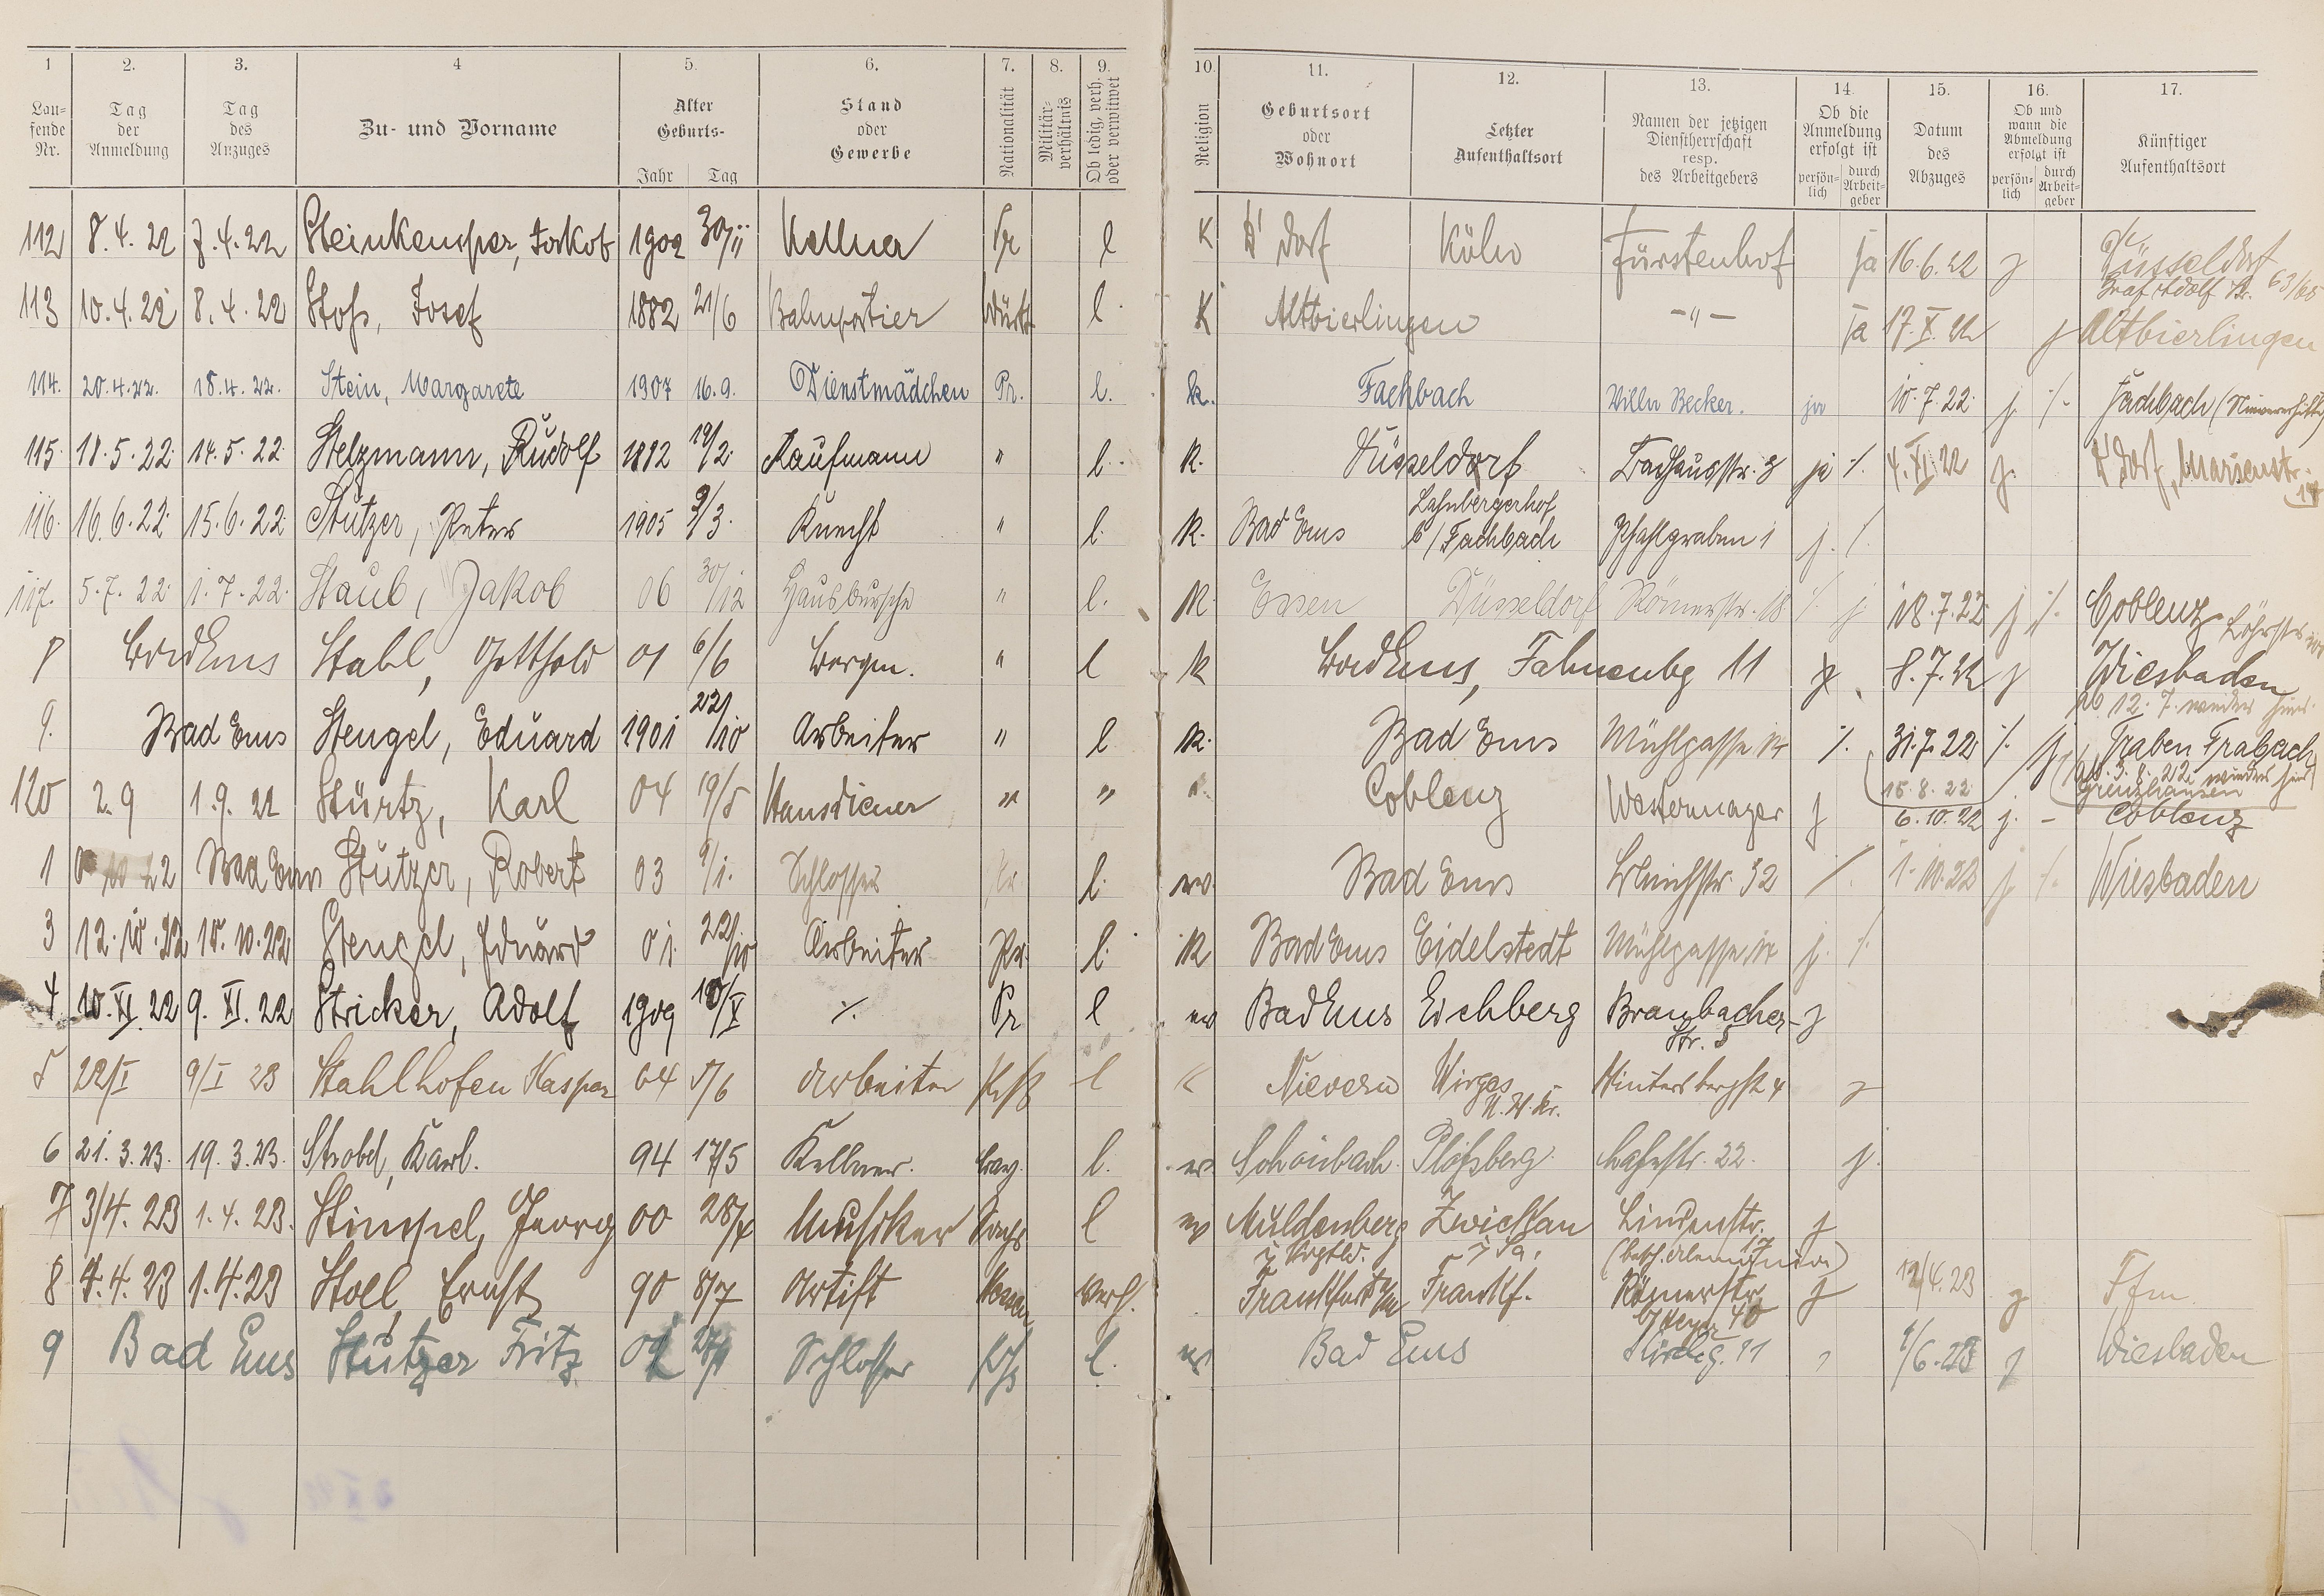 1 2. 3. 4 5. 6. 7. 8. 9. 10. 11. 12. 13. 14. 15. 16. 17.
Lau-
fende
Nr.
Tag
der
Anmeldung
Tag
des
Anzuges
Zu- und Vorname
Alter
Geburts-
Jahr Tag
Stand
oder
Gewerbe
Nationalität
Militär-
verhältnis
Ob ledig, verh.
oder verwitwet
Religion
Geburtsort
oder
Wohnort
Letzter
Aufenthaltsort
Namen der jetzigen
Dienstherrschaft
resp.
des Arbeitgebers
Ob die
Anmeldung
erfolgt ist
persön-
lich
durch
Arbeit-
geber
Datum
des
Abzuges
Ob und
wann die
Abmeldung
erfolgt ist
persön-
lich
durch
Arbeit-
geber
Künftiger
Aufenthaltsort
112 8.4.22 7.4.22 Steinkemper, Jackob 1902 30/11 Kellner Pr l K D'dorf Köln Fürstenhof ja 16.6.22 j Düsseldorf
Graf Adolf Str. 63/65
113 10.4.22 8.4.22 Stoß, Josef 1882 21/6 Bahnportier Württ l K Altbierlingen -"- ja 17.X.22 j Altbierlingen
114. 20.4.22. 18.4.22. Stein, Margarete 1907 16.9. Dienstmädchen Pr. l. k. Fachbach Villa Becker. ja 10.7.22 j. ·/. Fachbach
115. 18.5.22. 14.5.22. Stelzmann, Rudolf 1892 19/2. Kaufmann " l. K. Düsseldorf Badhausstr. 3 ja ·/. 4.XI.22 j. D'dorf, Marienstr.
116. 16.6.22. 15.6.22. Stutzer, Peter 1905 9/3. Knecht " l. K. Bad Ems Lahnbergerhof
b/Fachbach Pfahlgraben 1 j. ·/.
117. 5.7.22. 1.7.22. Staub, Jakob 06 30/12 Hausbursche " l. K. Essen Düsseldorf Römerstr. 18 ·/. j 18.7.22 j ·/. Coblenz Löhrstr.
8 Bad Ems Stahl, Gotthold 01 6/6 Bergm. " l K Bad Ems, Fahnenbg 11 8.7.22 j Wiesbaden
12.7. wieder hier
9. Bad Ems Stengel, Eduard 1901 22/10 Arbeiter " l K. Bad Ems Mühlgasse ·/. 31.7.22 ·/. Traben Trabach
3.8.22 wieder hier
120 2.9 1.9.22 Stürtz, Karl 04 19/5 Hausdiener " " " Coblenz Westermayer j 15.8.22 Grenzhausen
6.10.22 j. - Coblenz
1 22 Bad Ems Stutzer, Robert 03 9/1. Schlosser Pr. l. ev. Bad Ems Bleichstr. 32 ·/. 1.10.22 j. ·/. Wiesbaden
3 12.10.22 10.10.22 Stengel, Eduard 01 22/10 Arbeiter Pr. l. K Bad Ems Eidelstedt Mühlgasse j. ·/.
4 10.XI.22 9.XI.22 Stricker, Adolf 1909 10/X ·/. Pr l ev Bad Ems Eichberg Braubacher-
Str. 5 j
5 22/I 9/I 23 Stahlhofen Kaspar 04 5/6 Arbeiter l K Nievern Wirges
U.W.Kr. Wintersbergstr 4 j
6 21.3.23. 19.3.23. Strobel, Karl. 94 17/5 Kellner. Bay. l. ev. Schönbach. Plößberg. Lahnstr. 22. j.
7 3/4.23 1.4.23. Stimpel, Georg 00 28/4 Musiker Sachs l ev Muldenberg
i Vogtld. Zwickau
i Sa. Lindenstr.
17 j
8 4.4.23 1.4.23 Stoll, Ernst 90 8/7 Artist Hessen verh. Frankfurt a/M Frankf. Römerstr.
40 j 12/4.23 j Ffm
9 Bad Ems Stutzer Fritz Schlosser l. ev Bad Ems Kirchg. 11 1/6.23 j Wiesbaden